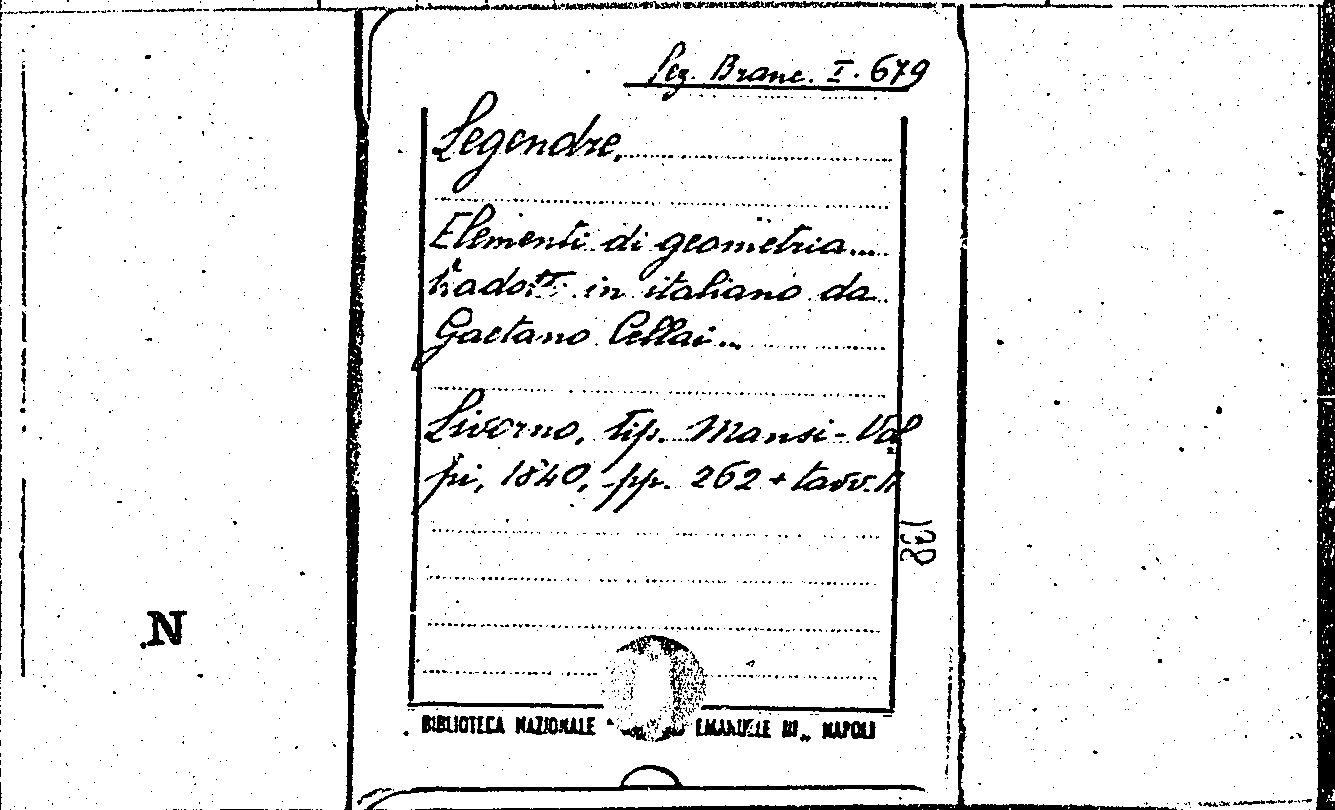 Sez. Branc. I. 679
Legendre.
Elementi di geometria...
tradotti in italiano da
Gaetano Cellai...
Livorno, tip. Mansi-Vol
pi, 1840, pp. 262 + tavv. 11
138
N
BIBLIOTECA NAZIONALE " EMANUELE III„ NAPOLI